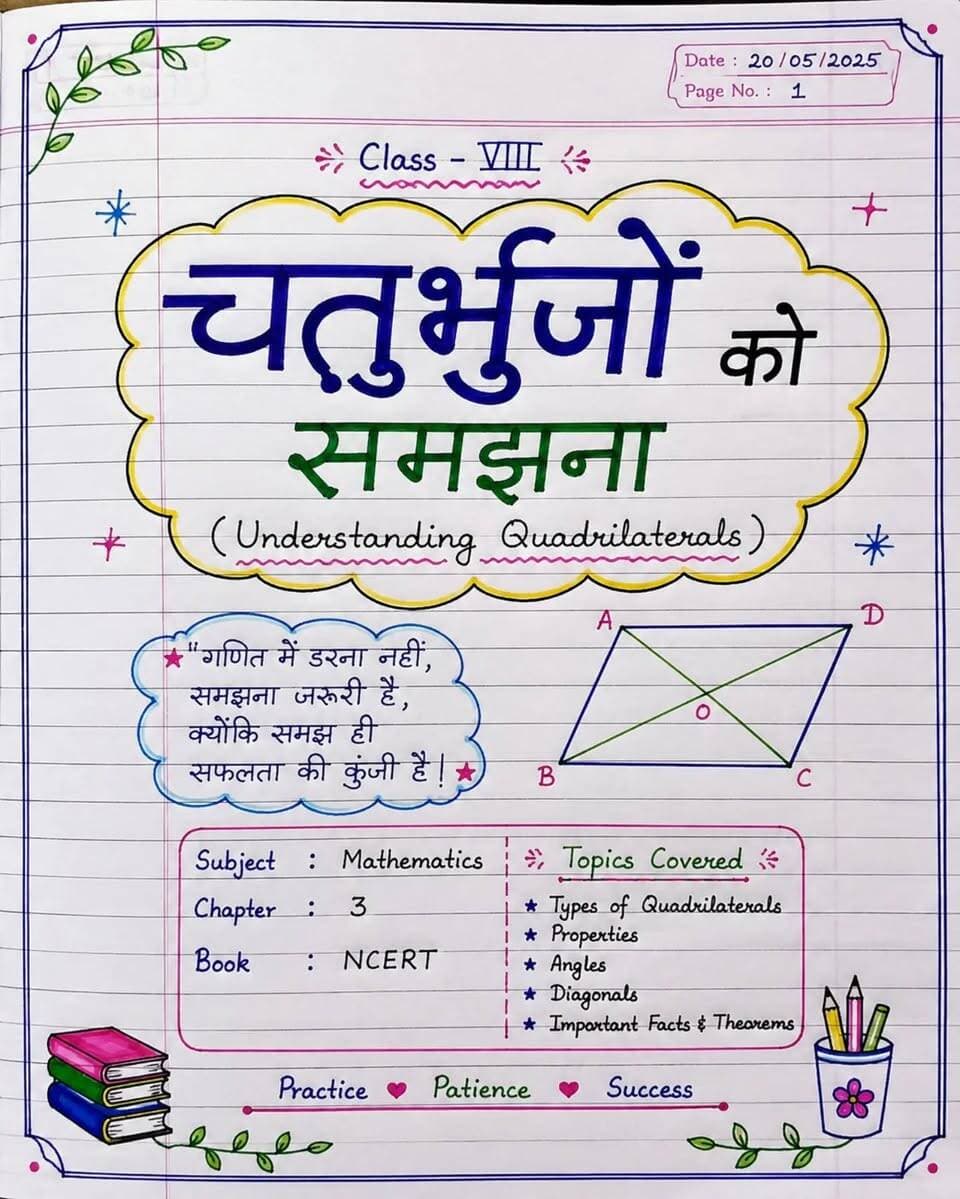 Date : 20/05/2025
Page No. : 1
Class - VIII
चतुर्भुजों को
समझना
(Understanding Quadrilaterals)
"गणित में डरना नहीं,
समझना जरूरी है,
क्योंकि समझ ही
सफलता की कुंजी है!
A
D
O
B
C
Subject : Mathematics
Chapter : 3
Book : NCERT
Topics Covered
★ Types of Quadrilaterals
★ Properties
★ Angles
★ Diagonals
★ Important Facts & Theorems
Practice ♥ Patience ♥ Success